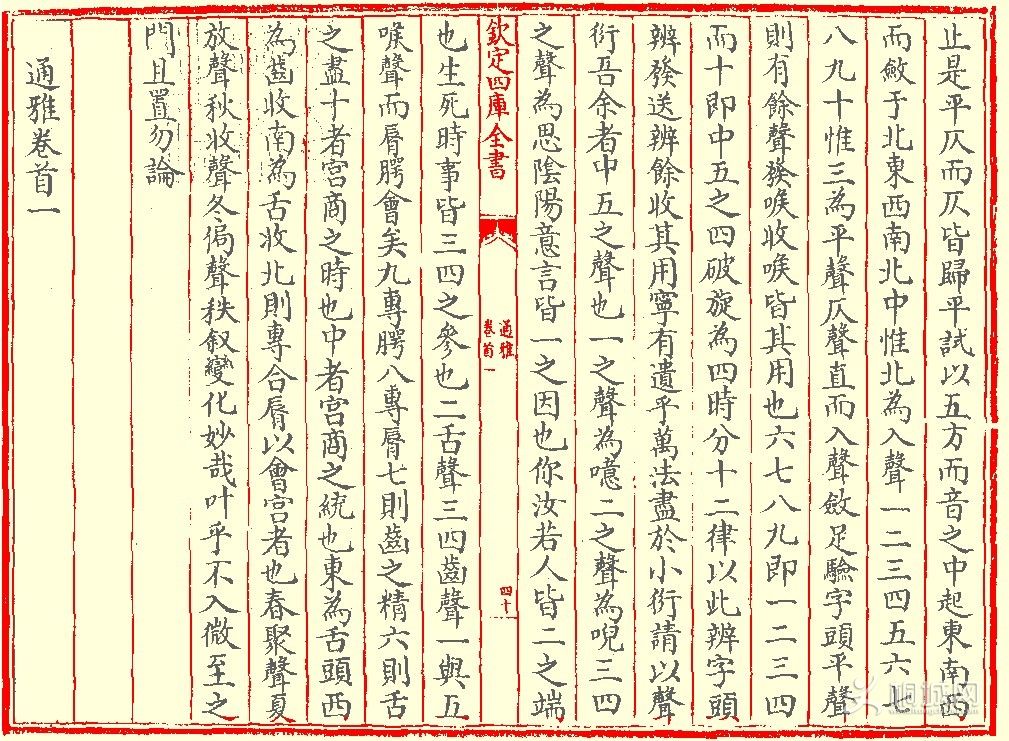 止是平仄而仄皆歸平試以五方而音之中起東南西
而斂于北東西南北中惟北為入聲一二三四五六七
八九十惟三為平聲仄聲直而入聲斂足驗字頭平聲
則有餘聲發喉收喉皆其用也六七八九即一二三四
而十即中五之四破旋為四時分十二律以此辨字頭
辨發送辨餘收其用寧有遺乎萬法盡於小衍請以聲
衍吾余者中五之聲也一之聲為噫二之聲為唲三四
之聲為思陰陽意言皆一之因也你汝若人皆二之端
欽定四庫全書
通雅
卷首一
四十
也生死時事皆三四之參也二舌聲三四齒聲一與五
喉聲而脣腭會矣九專腭八專脣七則齒之精六則舌
之盡十者宮商之時也中者宮商之統也東為舌頭西
為齒收南為舌收北則專合脣以會宮者也春聚聲夏
放聲秋收聲冬偈聲秩叙變化妙哉叶乎不入微至之
門且置勿論
通雅卷首一